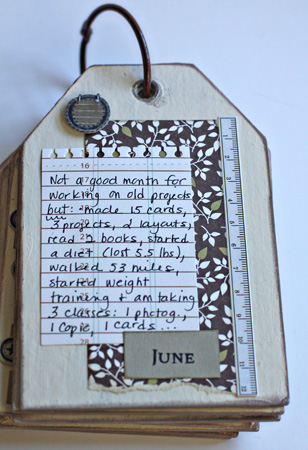 Not a good month for
working on old projects
but: made 15 cards,
3 projects, 2 layouts,
read 2 books, started
a diet (lost 5.5 lbs),
walked 53 miles,
started weight
training + am taking
3 classes: 1 photog.,
1 Copic, 1 cards...
JUNE